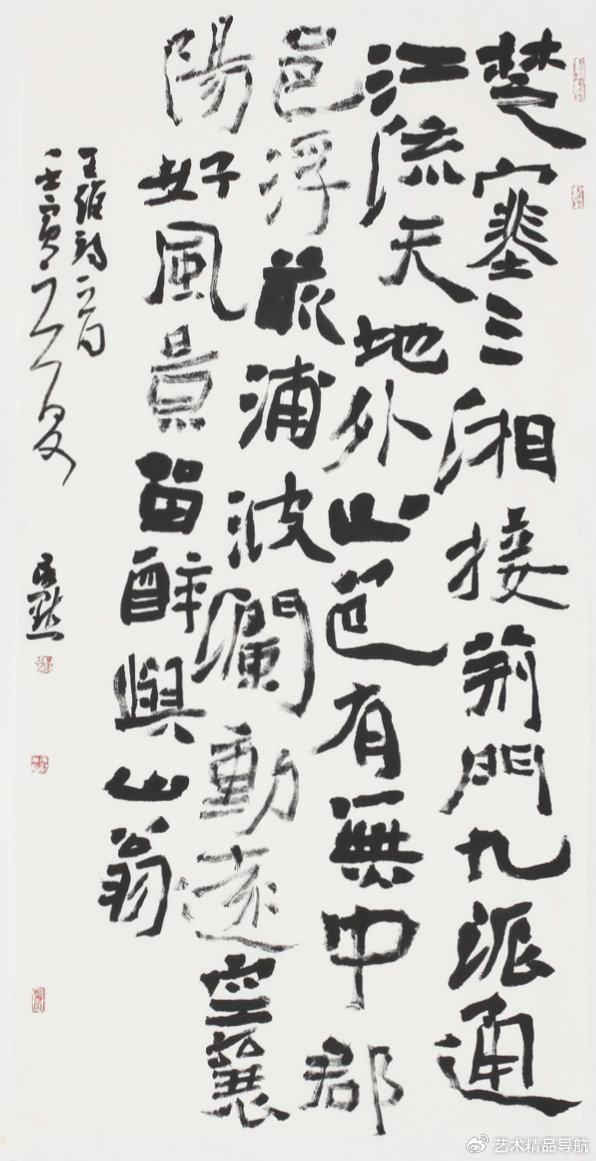 楚塞三湘接荊門九派通
江流天地外山色有無中郡
邑浮前浦波瀾動遠空襄
陽好風景留醉與山翁
王維詩一首
壬寅夏
艺术精品导航